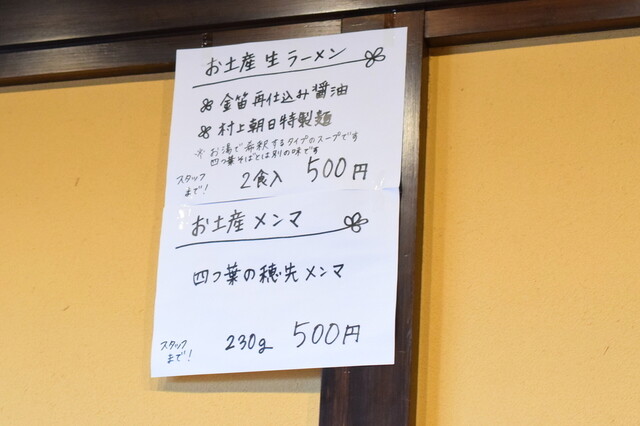 お土産 生ラーメン
金笛 再仕込み醤油
村上朝日特製麺
※ お湯で希釈するタイプのスープです
四つ葉そばとは別の味です
スタッフまで! 2食入 500円
お土産 メンマ
四つ葉の穂先メンマ
スタッフまで! 230g 500円